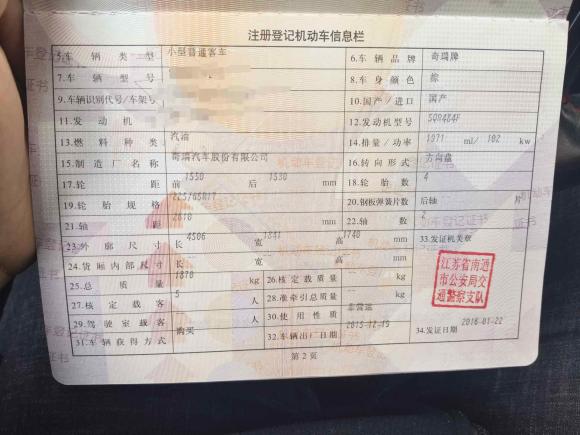 注册登记机动车信息栏
5.车辆类型 小型普通客车 6.车辆品牌 奇瑞牌
7.车辆型号 8.车身颜色 棕
9.车辆识别代号/车架号 10.国产/进口 国产
11.发动机 12.发动机型号 SQR484F
13.燃料种类 汽油 14.排量/功率 1971 ml/ 102 kw
15.制造厂名称 奇瑞汽车股份有限公司 16.转向形式 方向盘
17.轮距 前 1550 后 1530 mm 18.轮胎数 4
19.轮胎规格 225/65R17 20.钢板弹簧片数 后轴 片
21.轴距 2610 mm 22.轴数 2
23.外廓尺寸 长 4506 宽 1841 高 1740 mm 33.发证机关章
24.货厢内部尺寸 长 宽 高 mm
25.总质量 1870 kg 26.核定载质量 -- kg
27.核定载客 5 人 28.准牵引总质量 -- kg
29.驾驶室载客 人 30.使用性质 非营运
31.车辆获得方式 购买 32.车辆出厂日期 2015-12-19 34.发证日期 2016-01-22
江苏省南通
市公安局交
通警察支队
第2页